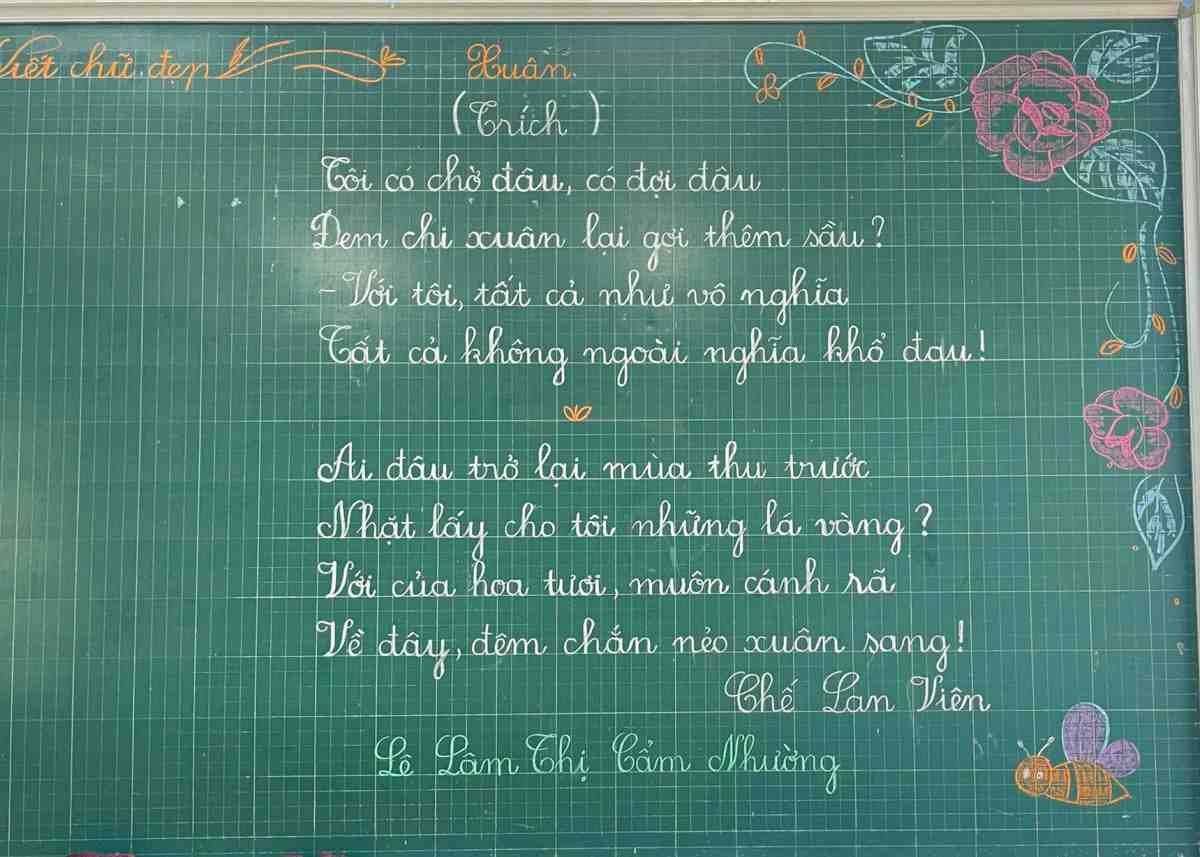 Viết chữ đẹp
Xuân
(Trích)
Tôi có chờ đâu, có đợi đâu
Đem chi xuân lại gợi thêm sầu?
- Với tôi, tất cả như vô nghĩa
Tất cả không ngoài nghĩa khổ đau!
Ai đâu trở lại mùa thu trước
Nhặt lấy cho tôi những lá vàng?
Với của hoa tươi, muôn cánh rã
Về đây, đêm chắn nẻo xuân sang!
Chế Lan Viên
Lê Lâm Thị Cẩm Nhường